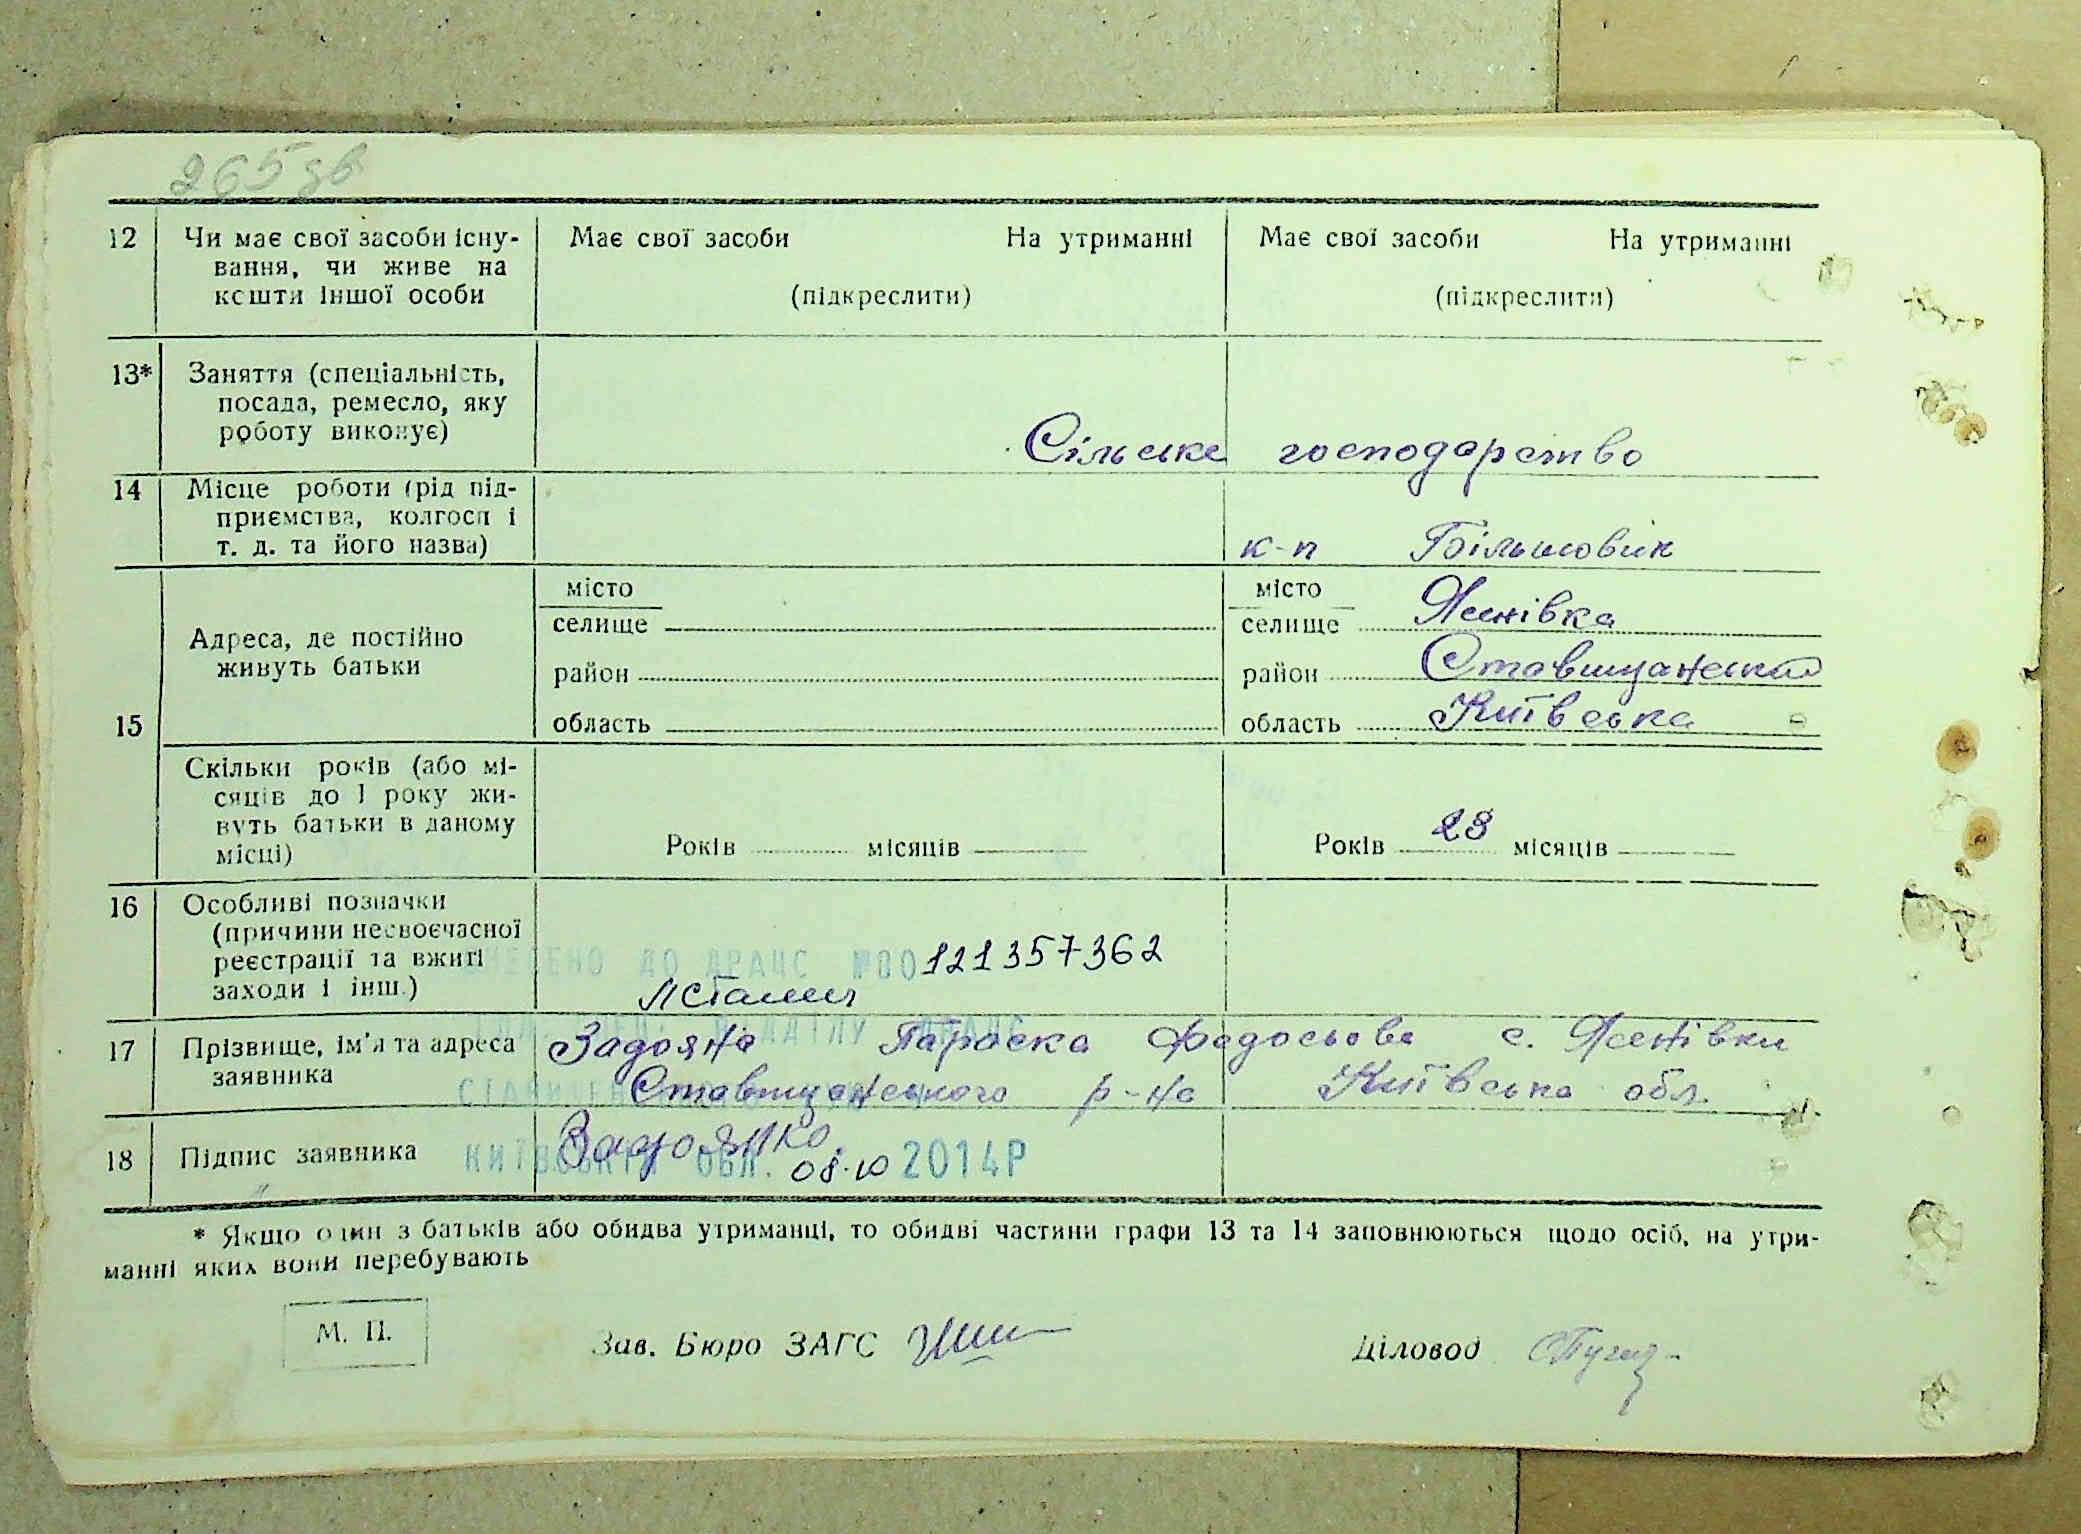 265 зв
12 Чи має свої засоби існу-
вання, чи живе на
кошти іншої особи
Має свої засоби На утриманні
(підкреслити)
Має свої засоби На утриманні
(підкреслити)
13* Заняття (спеціальність,
посада, ремесло, яку
роботу виконує)
Сільське господарство
14 Місце роботи (рід під-
приємства, колгосп і
т. д. та його назва)
к-п Більшовик
15 Адреса, де постійно
живуть батьки
місто
селище
район
область
місто
селище Ясенівка
район Ставищанський
область Київська
Скільки років (або мі-
сяців до 1 року жи-
вуть батьки в даному
місці)
Років місяців
Років 28 місяців
16 Особливі позначки
(причини несвоєчасної
реєстрації та вжиті
заходи і інш.)
ВНЕСЕНО ДО ДРАЦС №00121357362
17 Прізвище, ім'я та адреса
заявника
Задояна Параска Федосьова с. Ясенівки
Ставищанського р-на Київська обл.
18 Підпис заявника
КИЇВСЬКІЙ ОБЛ. 08.10 2014Р
* Якщо один з батьків або обидва утриманці, то обидві частини графи 13 та 14 заповнюються щодо осіб, на утри-
манні яких вони перебувають
М. П.
Зав. Бюро ЗАГС
Діловод